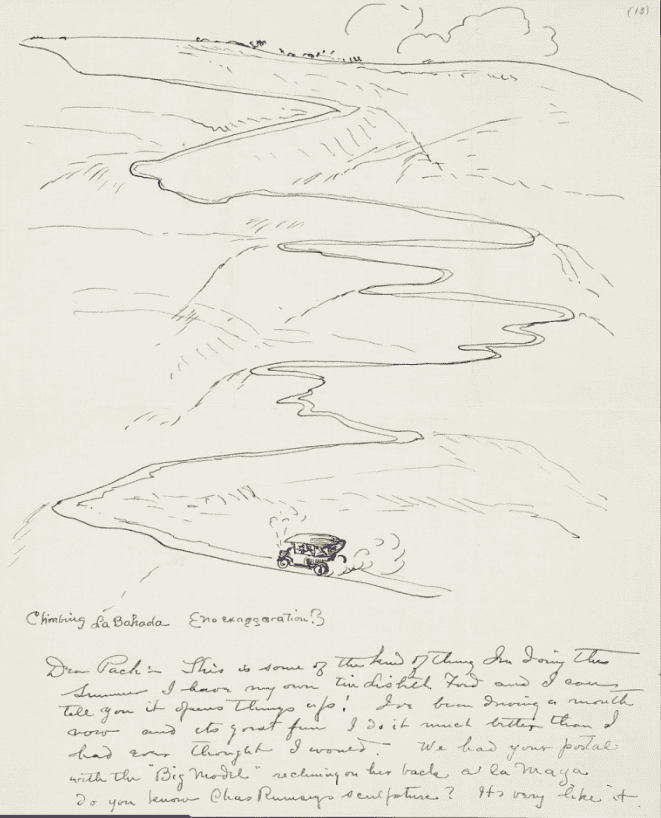 (18)
Climbing La Bahada [no exaggeration!]
Dear Pach :- This is some of the kind of thing Im doing this
Summer I have my own tin Ford and I can
tell you it opens things up! Ive been driving a month
now and its great fun I do it much better than I
had ever thought I would. We had your postal
with the "Big Model" reclining on her back a la Maya
do you know Chas Rumseys sculpture? Its very like it.